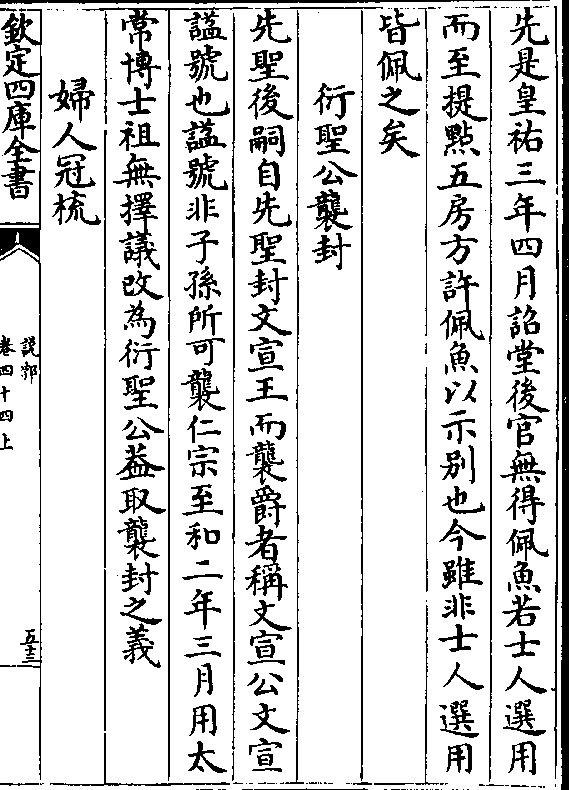 先是皇祐三年四月詔堂後官無得佩魚若士人選用
而至提點五房方許佩魚以示別也今雖非士人選用
皆佩之矣
衍聖公襲封
先聖後嗣自先聖封文宣王而襲爵者稱文宣公文宣
謚號也謚號非子孫所可襲仁宗至和二年三月用太
常博士祖無擇議改為衍聖公葢取襲封之義
婦人冠梳
欽定四庫全書
說郛
卷四十四上
五三